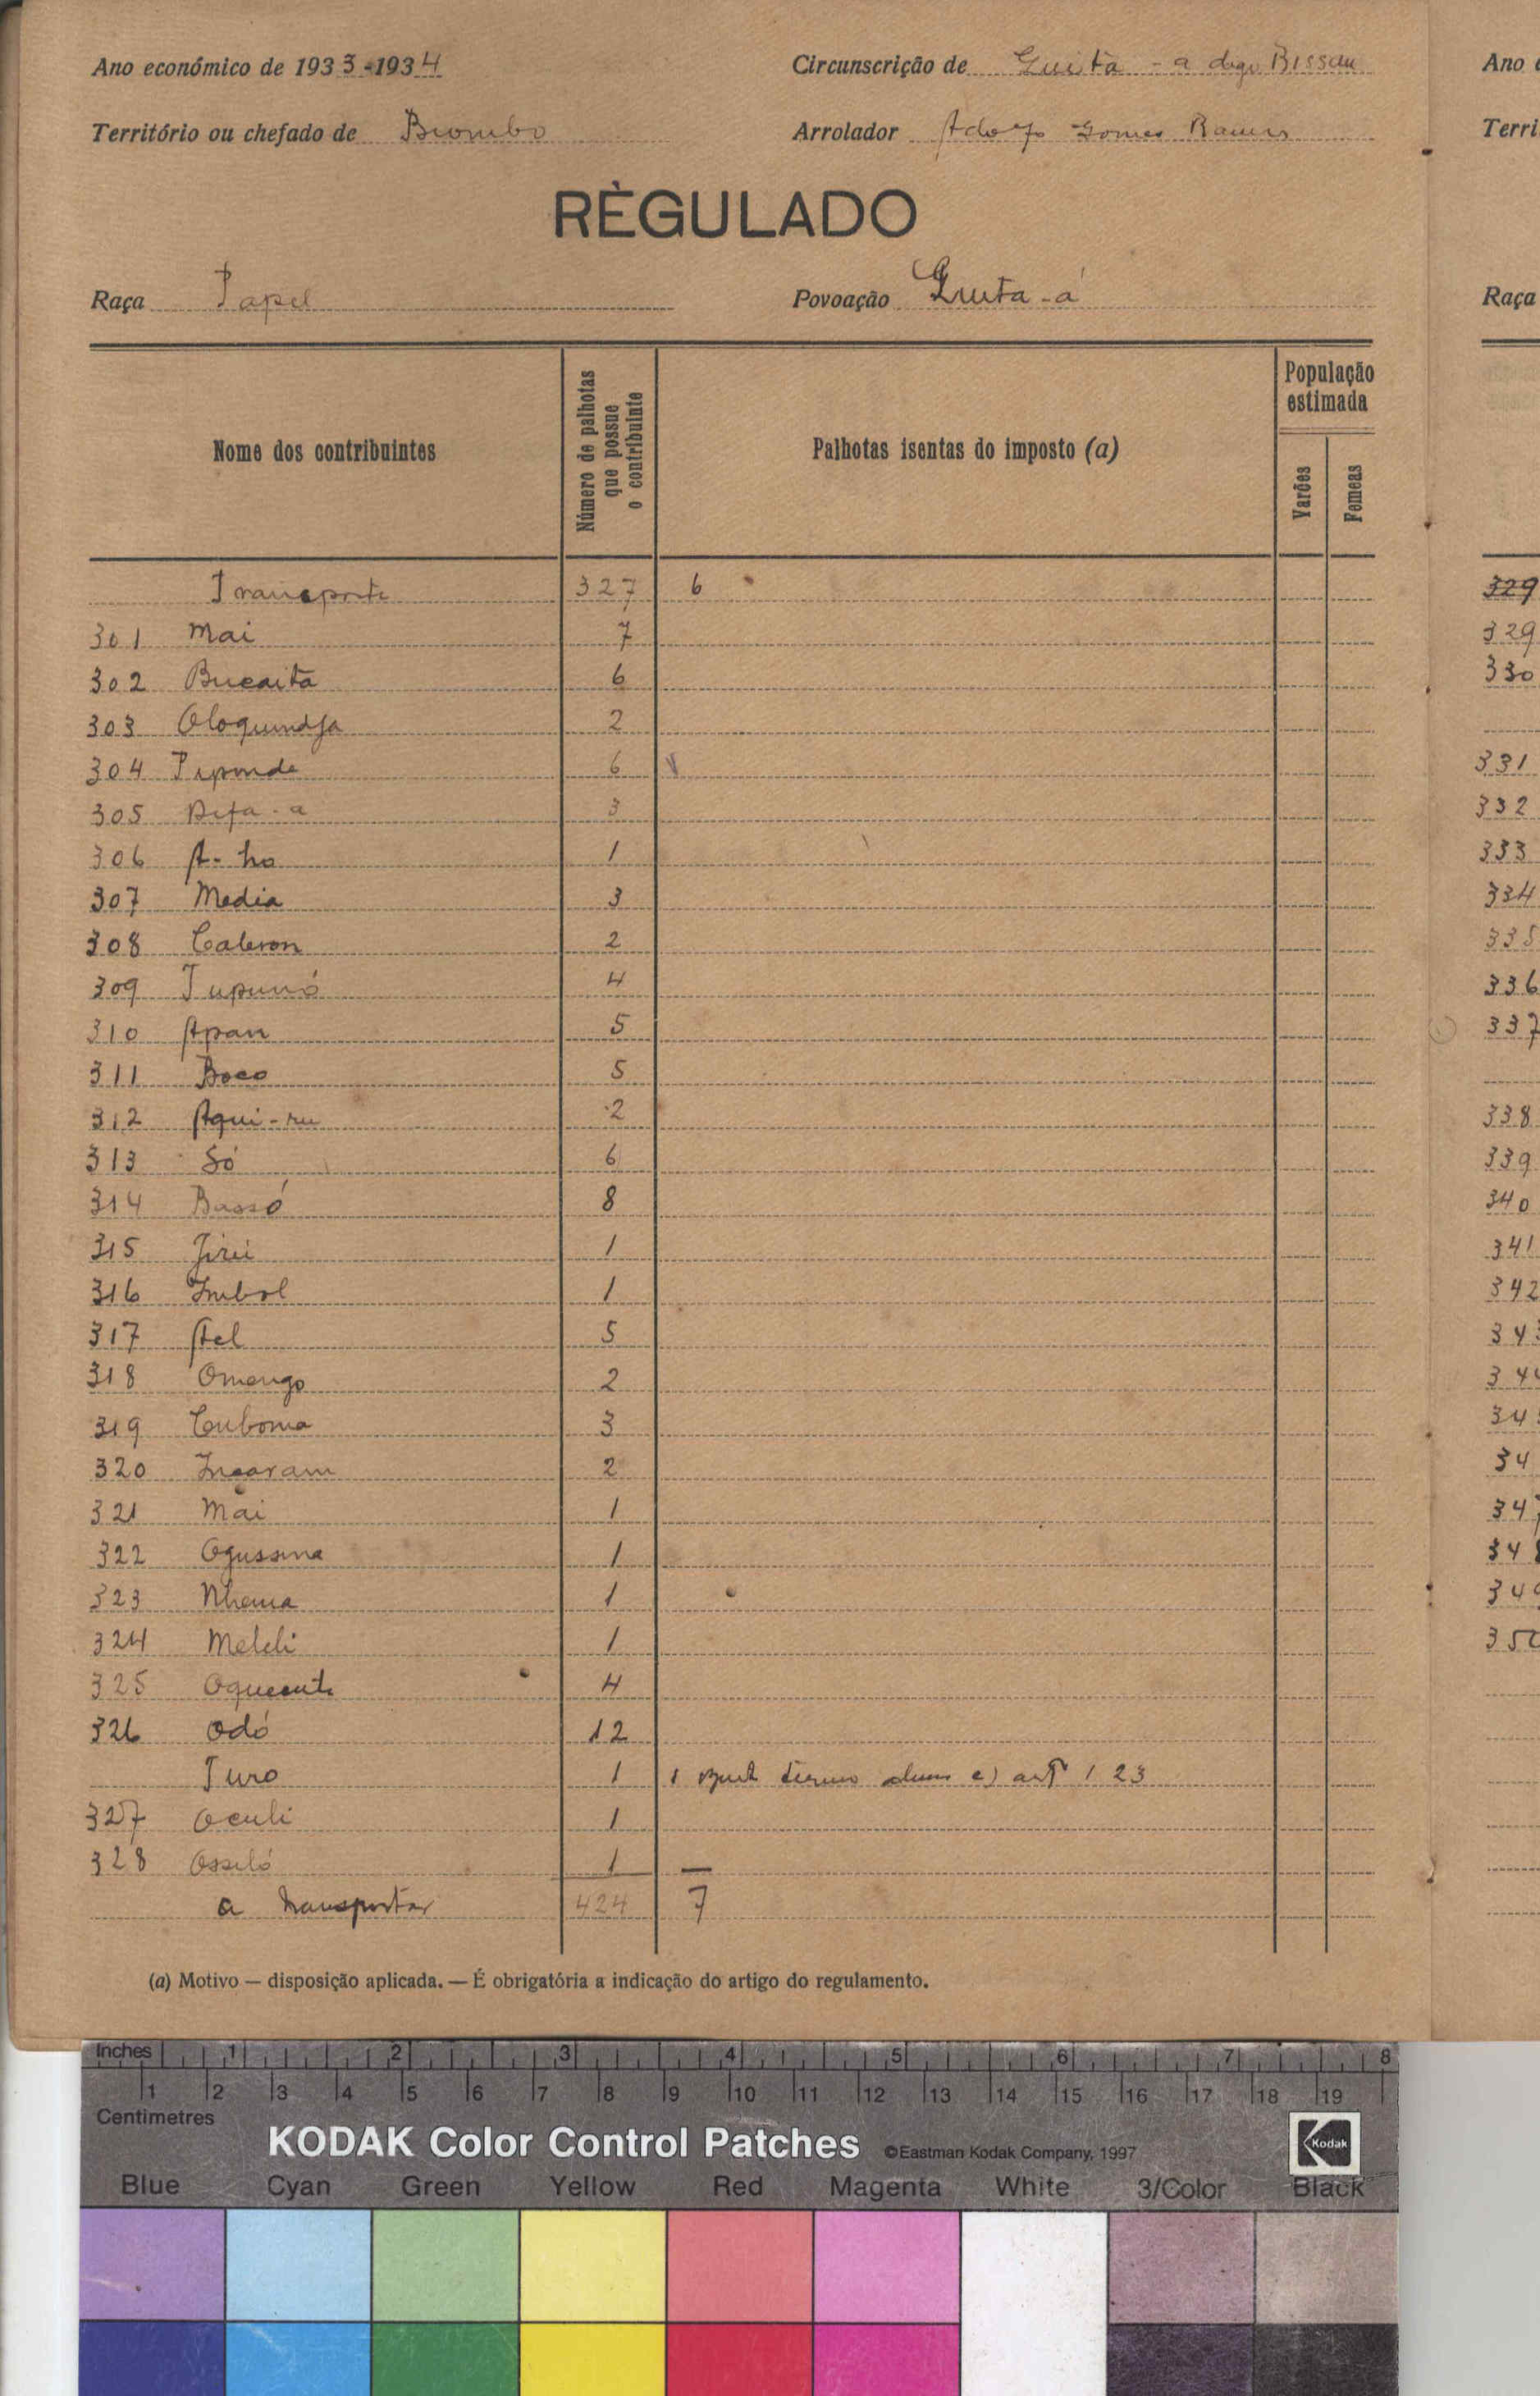 Ano económico de 1933-1934
Circunscrição de Guita - a digo Bissau
Território ou chefado de Biombo
Arrolador Adolfo Gomes Ramos
RÈGULADO
Raça Papel
Povoação Guita-á
Nome dos contribuintes
Número de palhotas que possue o contribuinte
Palhotas isentas do imposto (a)
População estimada
Varões
Femeas
Transporte 327 6
301 Mai 7
302 Bucaita 6
303 Oloquindja 2
304 Piponde 6
305 Difa-a 3
306 A-ho 1
307 Media 3
308 Caleron 2
309 Tupunó 4
310 Apan 5
311 Boco 5
312 Aqui-ru 2
313 Só 6
314 Bassó 8
315 Jirii 1
316 Imbol 1
317 Atel 5
318 Omengo 2
319 Cuboma 3
320 Incaram 2
321 Mai 1
322 Ogussma 1
323 Nhama 1
324 Meleli 1
325 4
326 Odó 12
Turo 1 1 artº 123
327 Oculi 1
328 Ossiló 1
a transportar 424 7
(a) Motivo — disposição aplicada. — É obrigatória a indicação do artigo do regulamento.
Ano
Terri
Raça
329
329
330
331
332
333
334
335
336
337
338
339
340
341
342
34
34
34
34
347
348
349
350
Inches 1 2 3 4 5 6 7 8
1 2 3 4 5 6 7 8 9 10 11 12 13 14 15 16 17 18 19
Centimetres
KODAK Color Control Patches ©Eastman Kodak Company, 1997 Kodak
Blue Cyan Green Yellow Red Magenta White 3/Color Black